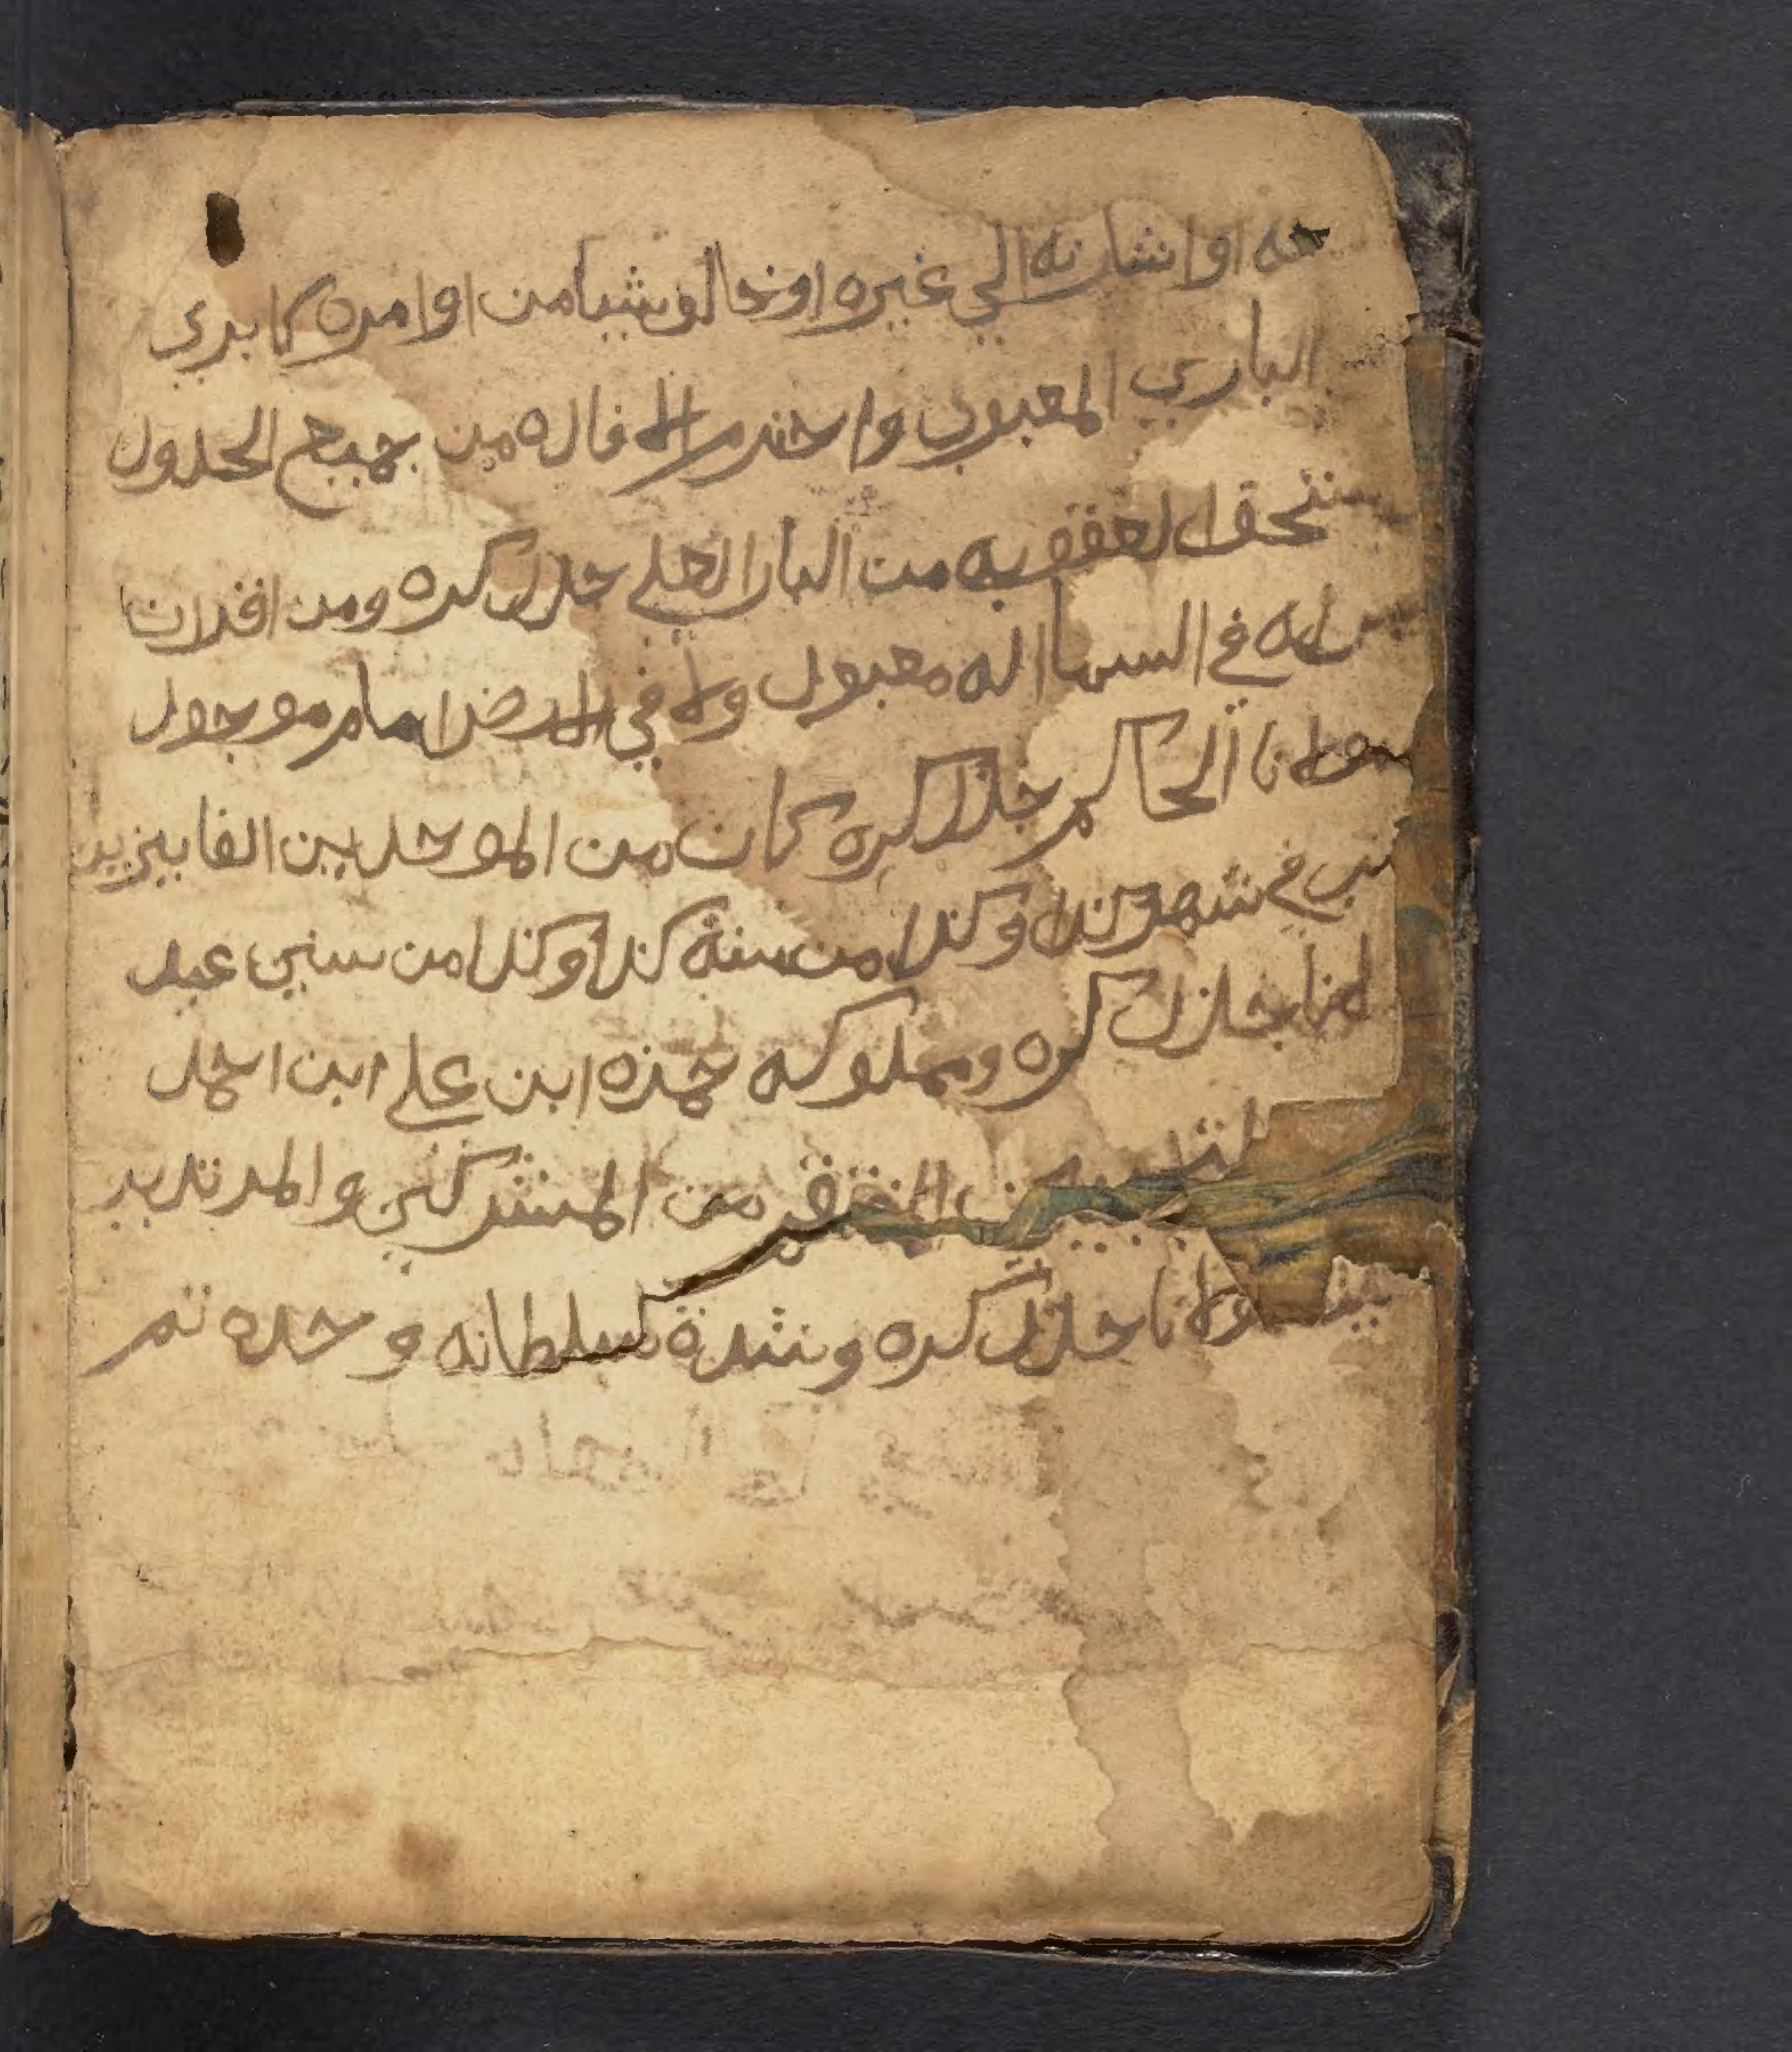 عه او اشارته الي غيره او خالف شيا من اوامره كا بري
الباري المعبود واحترم الافاده من جميع الحدود
ستحق العقوبه من البار العلي جل ذكره ومن اقر ان
ليس له في السما اله معبود ولا في الارض امام موجود
مولانا الحاكم جل ذكره كان من الموحدين الفايزين
كتب في شهر كذا وكذا من سنة كذا وكذا من سنين عبد
لانا جل ذكره ومملوكه حمزه ابن علي ابن احمد
المنتقم من المشركين والمرتدين
بسيف مولانا جل ذكره وشدة سلطانه وحده تم